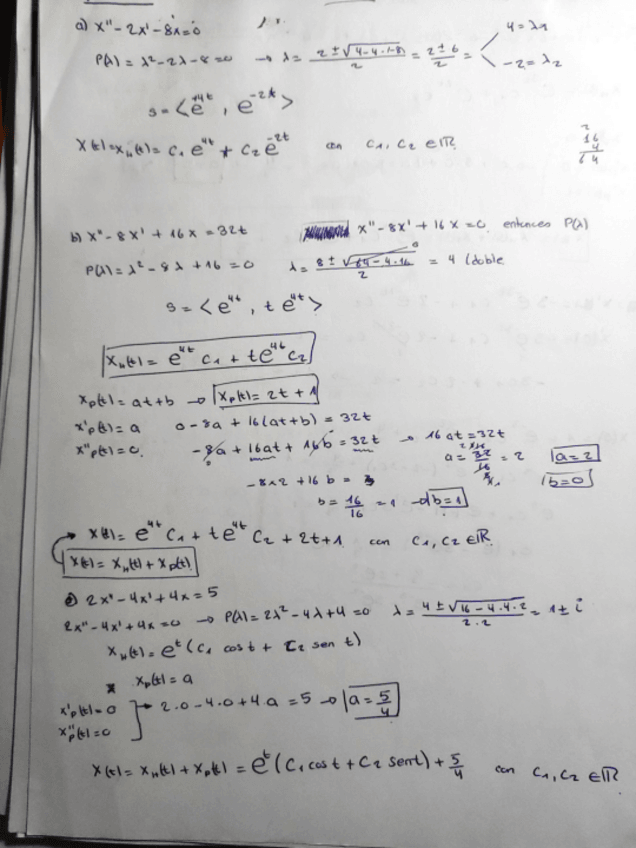 a) x'' - 2x' - 8x = 0
P(λ) = λ² - 2λ - 8 = 0 → λ = (2 ± √(4 - 4·(-8)))/2 = (2 ± 6)/2 = 4 = λ₁
-2 = λ₂
S = <e^{+4t}, e^{-2t}>
X(t) = x_H(t) = C₁ e^{4t} + C₂ e^{-2t} con C₁, C₂ ∈ ℝ
16
4
64
b) x'' - 8x' + 16x = 32t x'' - 8x' + 16x = 0 entonces P(λ)
P(λ) = λ² - 8λ + 16 = 0 λ = (8 ± √(64 - 4·16))/2 = 4 (doble
S = <e^{4t}, t e^{4t}>
X_H(t) = e^{4t} C₁ + t e^{4t} C₂
X_P(t) = at + b → X_P(t) = 2t + 1
x'_P(t) = a 0 - 8a + 16(at + b) = 32t
x''_P(t) = 0. -8a + 16at + 16b = 32t → 16at = 32t
a = 32/16 = 2 a = 2
-8×2 + 16b = b = 0
b = 16/16 = 1 → b = 1
X(t) = e^{4t} C₁ + t e^{4t} C₂ + 2t + 1 con C₁, C₂ ∈ ℝ.
X(t) = X_H(t) + X_P(t)
2x'' - 4x' + 4x = 5
2x'' - 4x' + 4x = 0 → P(λ) = 2λ² - 4λ + 4 = 0 λ = (4 ± √(16 - 4·4·2))/(2·2) = 1 ± i
X_H(t) = e^t (C₁ cos t + C₂ sen t)
X_P(t) = a
x'_P(t) = 0 → 2·0 - 4·0 + 4·a = 5 → a = 5/4
x''_P(t) = 0
X(t) = X_H(t) + X_P(t) = e^t (C₁ cos t + C₂ sen t) + 5/4 con C₁, C₂ ∈ ℝ